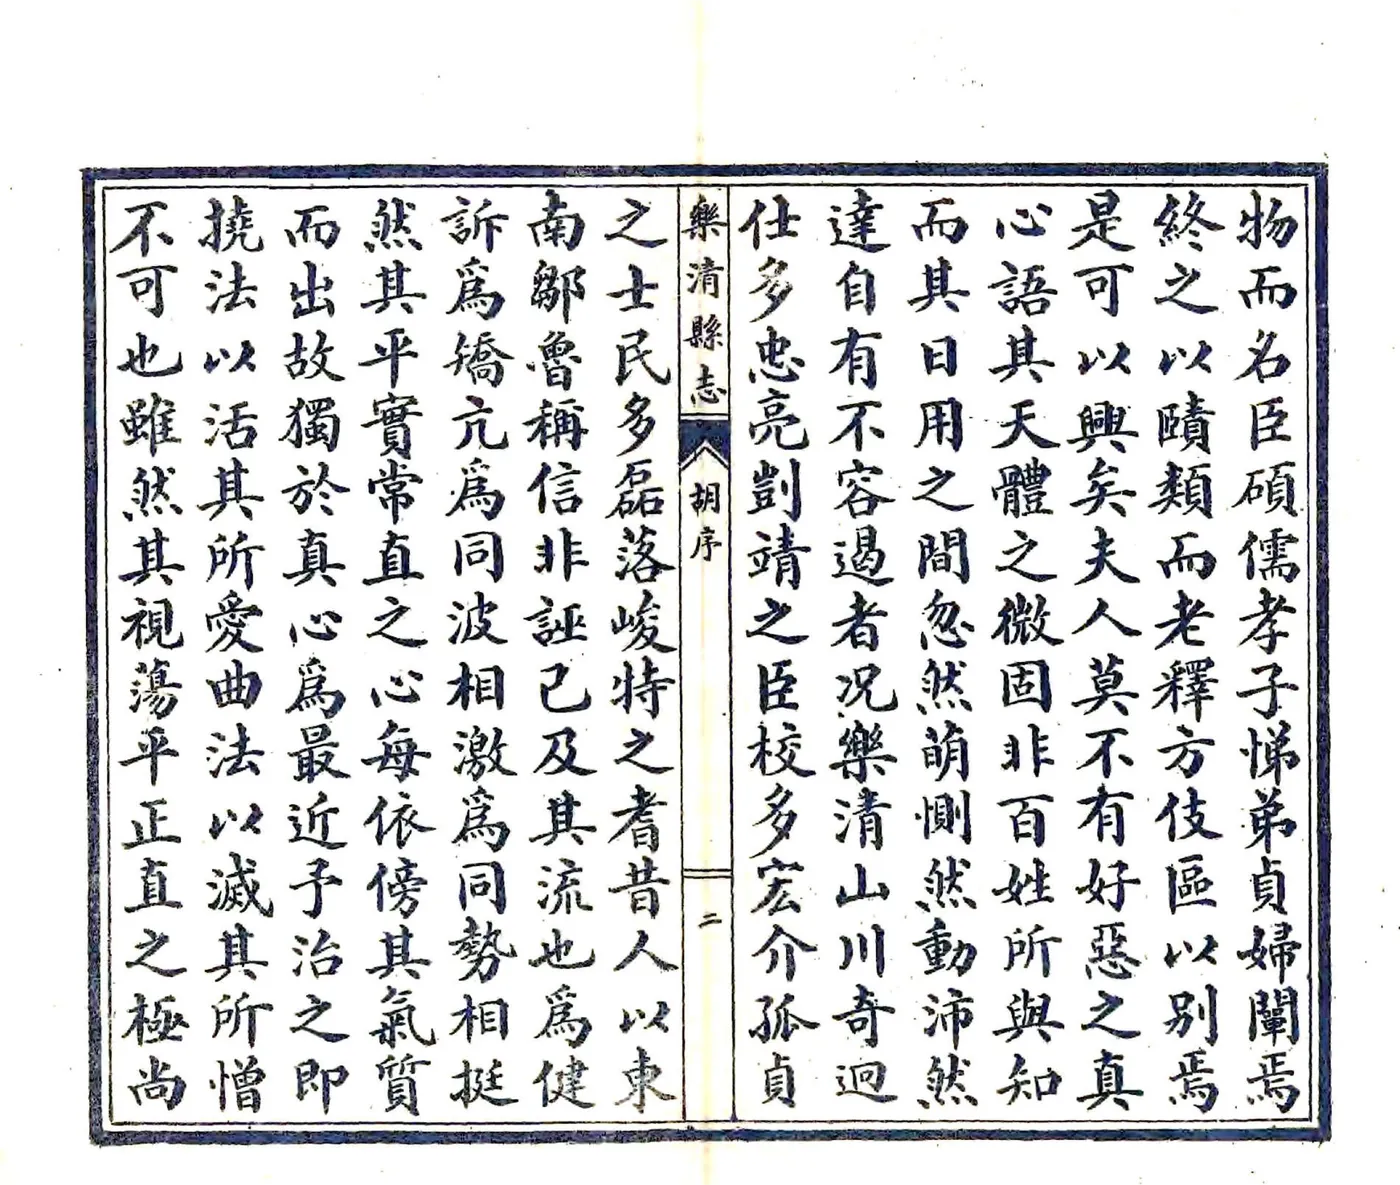 物而名臣碩儒孝子悌弟貞婦闡焉
終之以賾類而老釋方伎區以别焉
是可以興矣夫人莫不有好惡之真
心語其天體之微固非百姓所與知
而其日用之間忽然萌惻然動沛然
達自有不容遏者况樂清山川奇迥
仕多忠亮剴靖之臣校多宏介孤貞
樂清縣志
胡序
二
之士民多磊落峻特之耆昔人以東
南鄒魯稱信非誣已及其流也為健
訴為矯亢為同波相激為同勢相挺
然其平實常直之心每依傍其氣質
而出故獨於真心為最近予治之即
撓法以活其所愛曲法以滅其所憎
不可也雖然其視蕩平正直之極尚